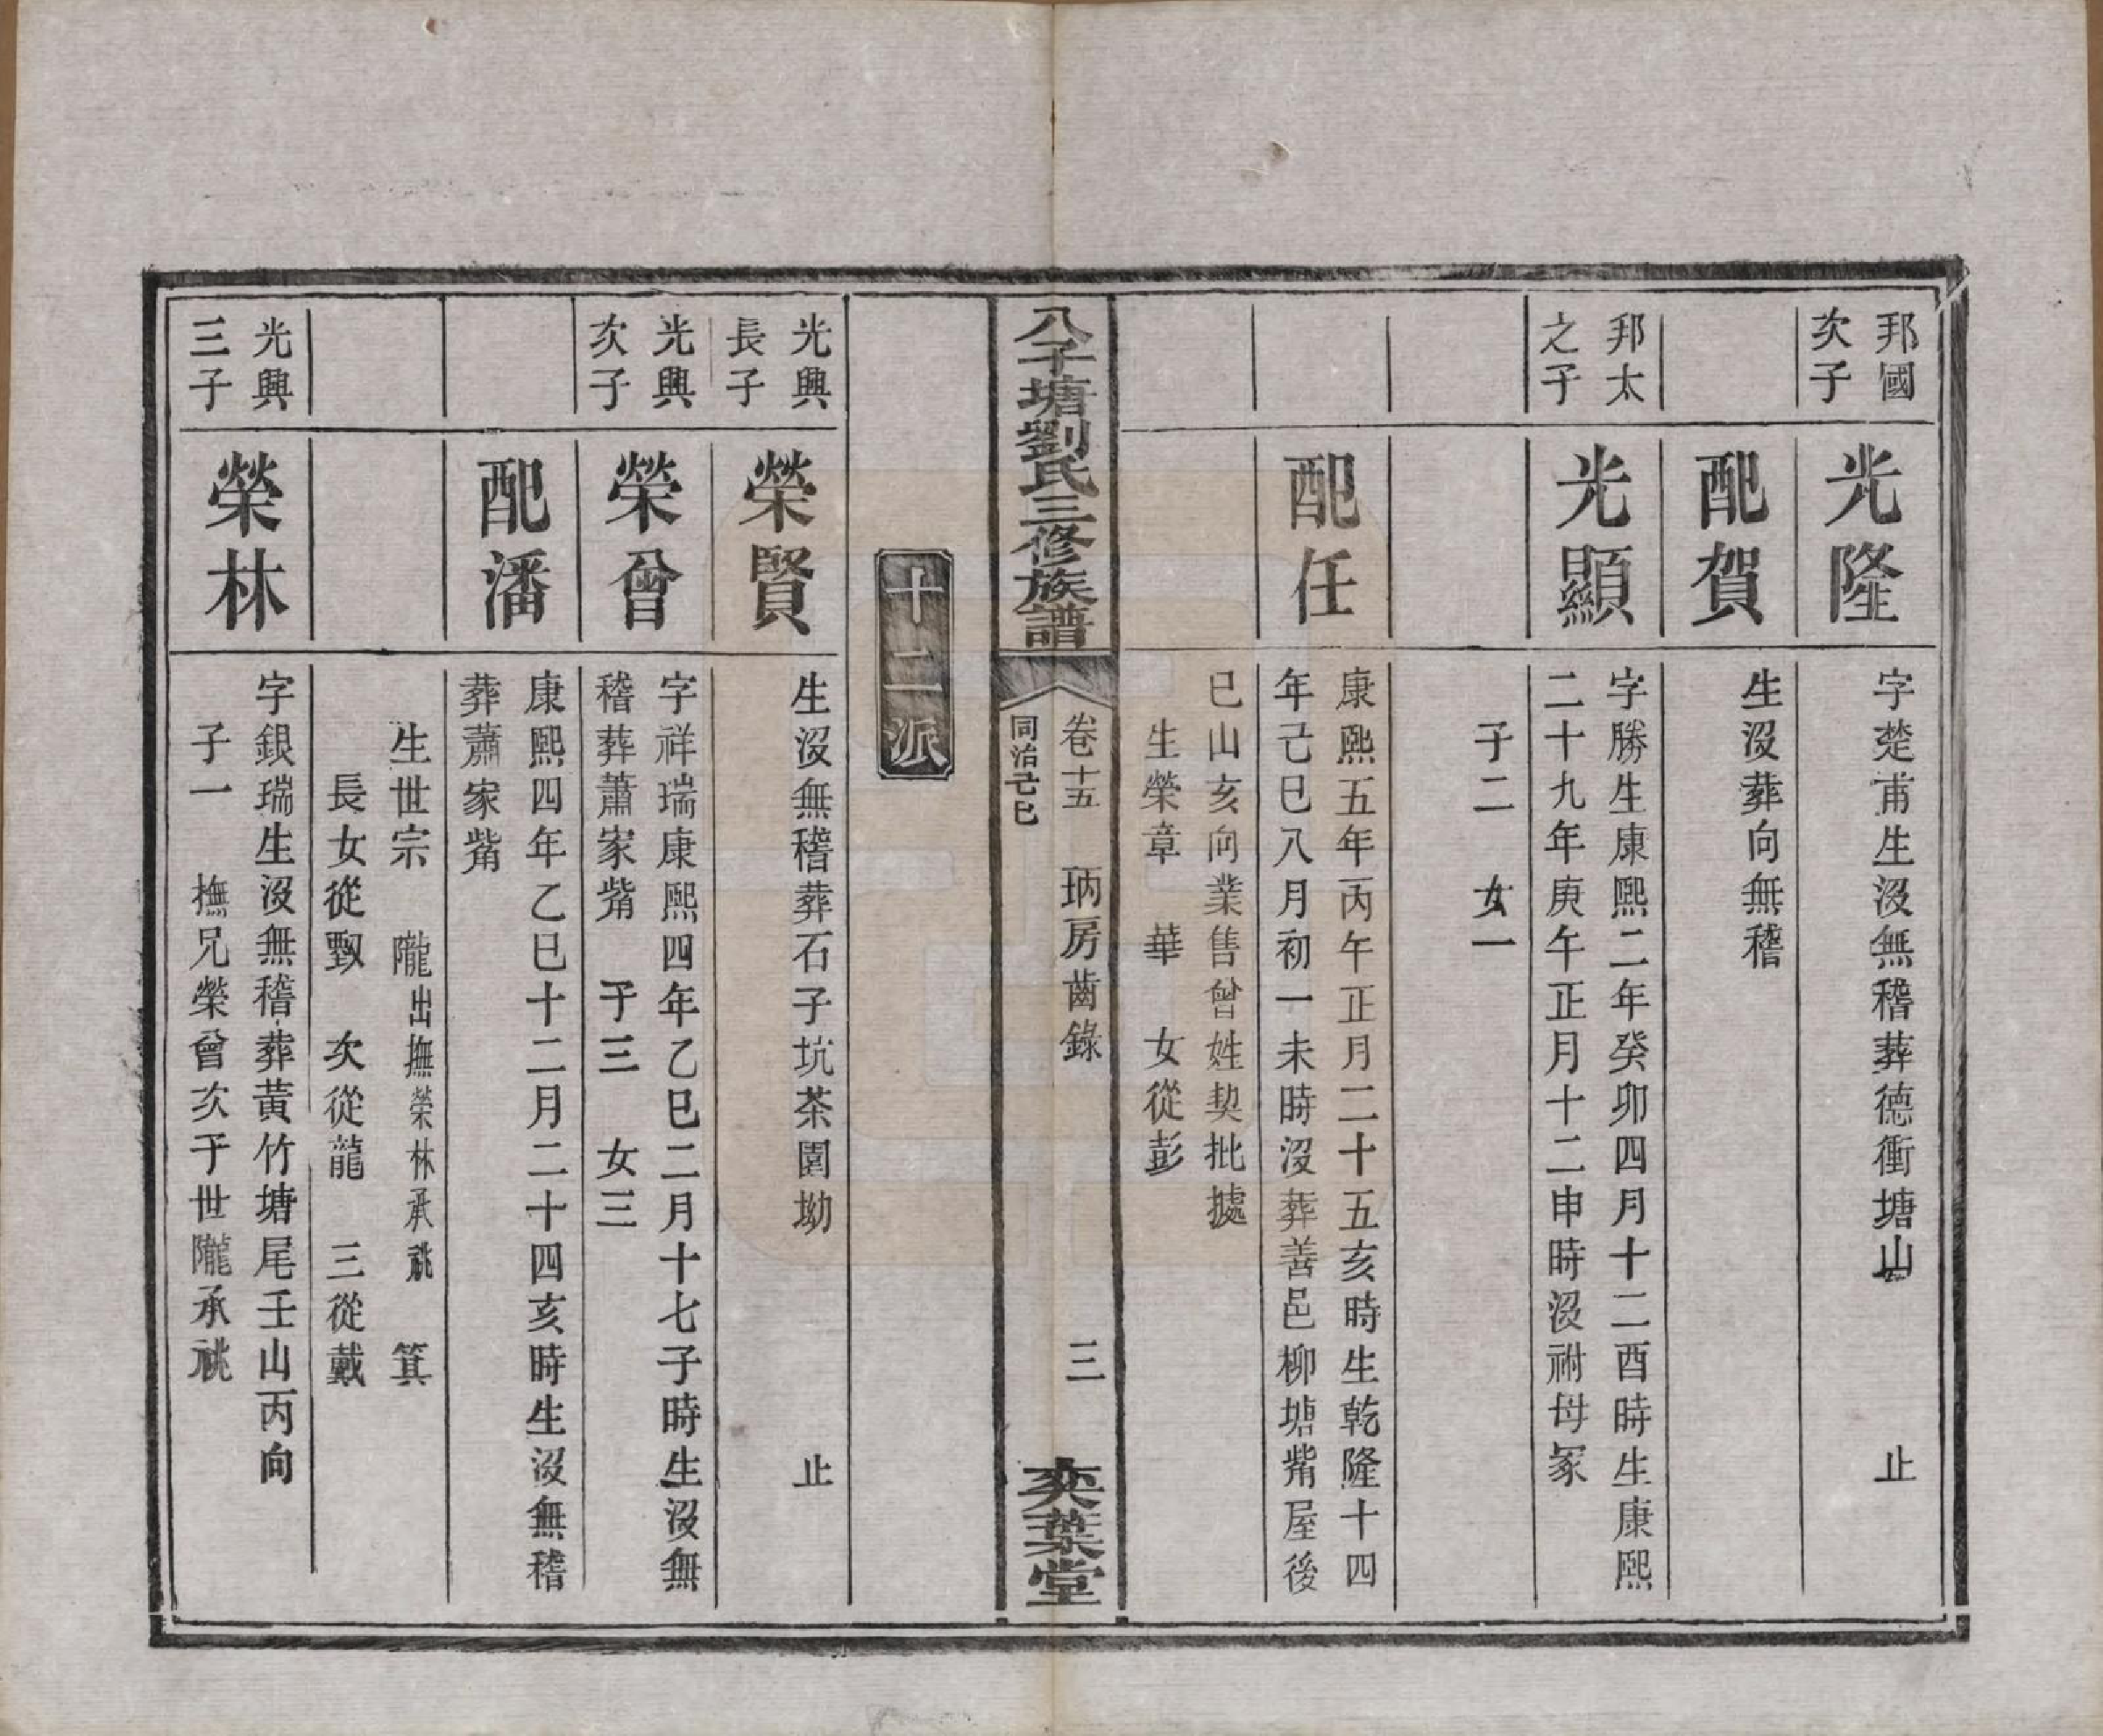 邦國
次子
光隆
字楚甫生沒無稽葬德衝塘山　止
配賀
生沒葬向無稽
邦太
之子
光顯
字勝生康熙二年癸卯四月十二酉時生康熙
二十九年庚午正月十二申時沒祔母冢
子二　女一
配任
康熙五年丙午正月二十五亥時生乾隆十四
年己巳八月初一未時沒葬善邑柳塘觜屋後
巳山亥向業售曾姓契批據
生榮章　華　女從彭
八子塘劉氏三修族譜
卷十五　㻂房齒錄　三
同治己巳
奕葉堂
十二派
光興
長子
榮賢
生沒無稽葬石子坑茶園坳　止
光興
次子
榮曾
字祥瑞康熙四年乙巳二月十七子時生沒無
稽葬蕭家觜　子三　女三
配潘
康熙四年乙巳十二月二十四亥時生沒無稽
葬蕭家觜
生世宗　隴出撫榮林承祧　箕
長女從甄　次從龍　三從戴
光興
三子
榮林
字銀瑞生沒無稽葬黃竹塘尾壬山丙向
子一　撫兄榮曾次子世隴承祧